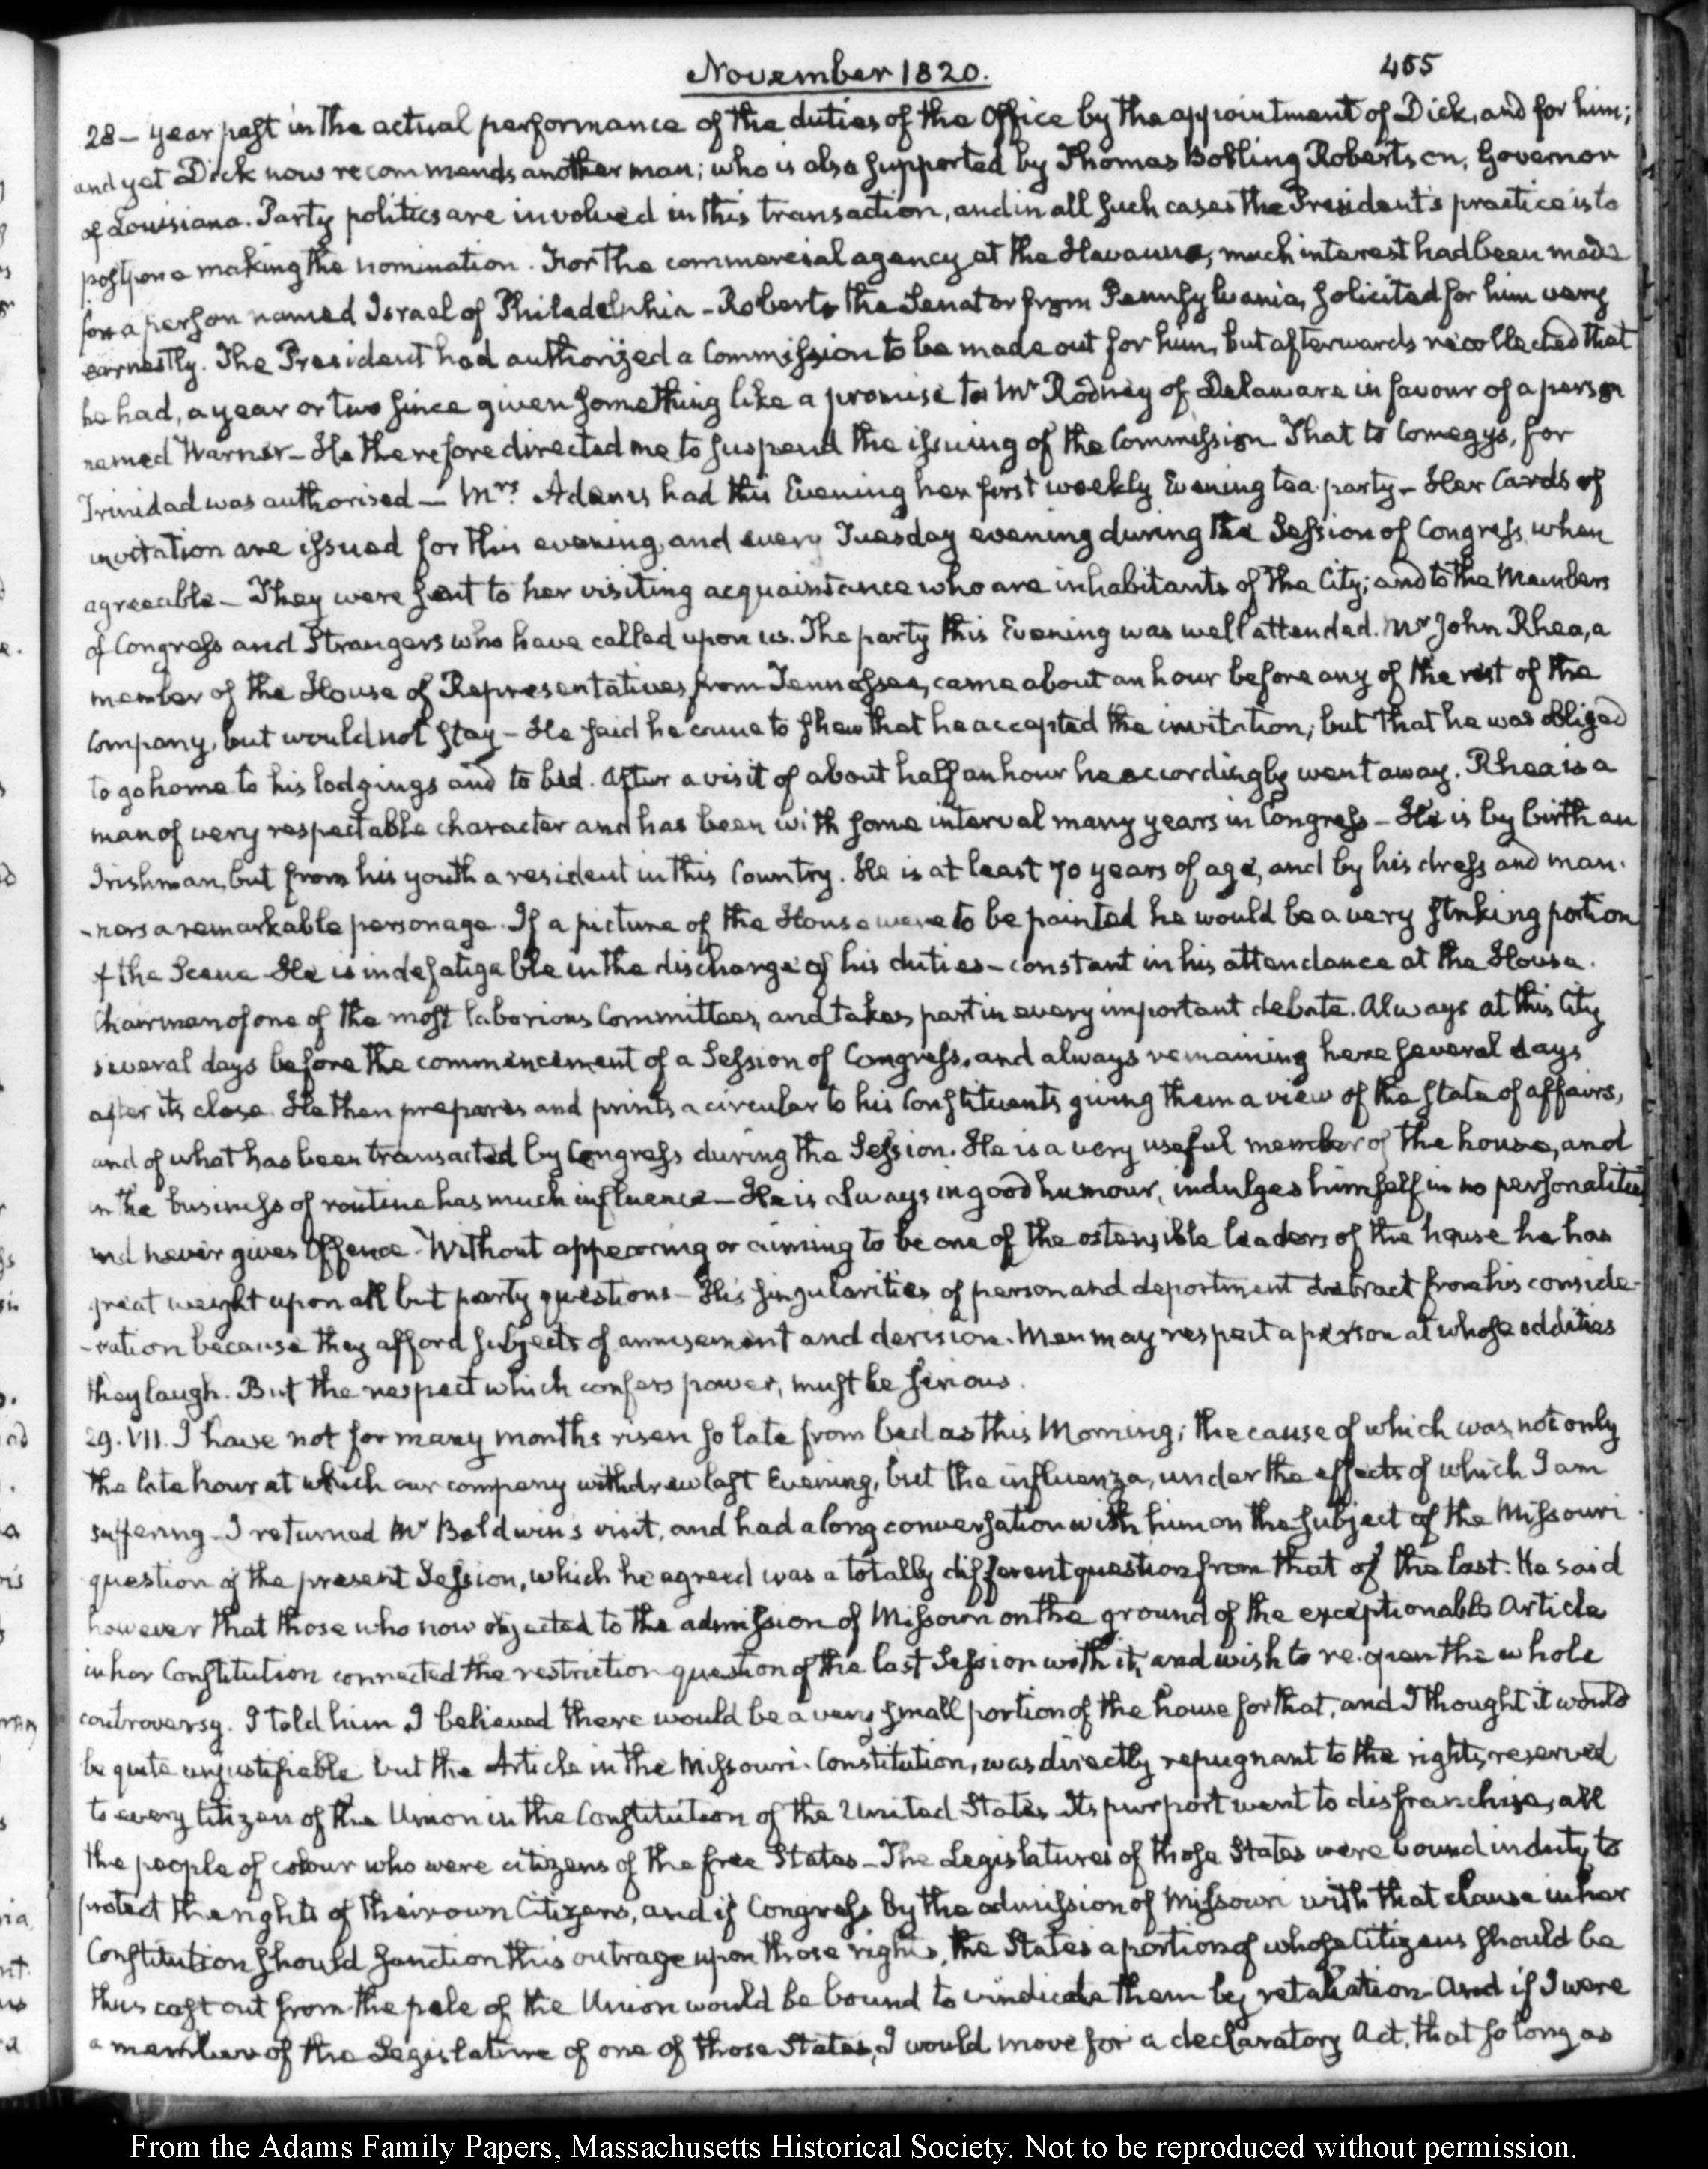 November 1820.
455
28 - year past in the actual performance of the duties of the Office by the appointment of Dick, and for him;
and yet Dick now recommends another man; who is also supported by Thomas Bolling Robertson, Governor
of Louisiana. Party politics are involved in this transaction, and in all such cases the President's practice is to
postpone making the nomination. For the commercial agency at the Havanna, much interest had been made
for a person named Israel of Philadelphia - Roberts the Senator from Pennsylvania, solicited for him very
earnestly. The President had authorized a Commission to be made out for him, but afterwards recollected that
he had, a year or two since given something like a promise to Mr Rodney of Delaware in favour of a person
named Warner - He therefore directed me to suspend the issuing of the Commission. That to Comegys, for
Trinidad was authorised - Mrs Adams had this Evening her first weekly Evening tea party - Her Cards of
invitation are issued for this evening, and every Tuesday evening during the Session of Congress, when
agreeable - They were sent to her visiting acquaintance who are inhabitants of the City; and to the Members
of Congress and Strangers who have called upon us. The party this Evening was well attended. Mr John Rhea, a
member of the House of Representatives from Tennessee, came about an hour before any of the rest of the
Company, but would not stay - He said he came to shew that he accepted the invitation; but that he was obliged
to go home to his lodgings and to bed. After a visit of about half an hour he accordingly went away. Rhea is a
man of very respectable character and has been with some interval many years in Congress - He is by birth an
Irishman, but from his youth a resident in this Country. He is at least 70 years of age, and by his dress and man-
-ners a remarkable personage. If a picture of the House were to be painted he would be a very striking portion
of the Scene - He is indefatigable in the discharge of his duties - constant in his attendance at the House.
Chairman of one of the most laborious Committees, and takes part in every important debate. Always at this City
several days before the commencement of a Session of Congress, and always remaining here several days
after its close. He then prepares and prints a circular to his Constituents giving them a view of the state of affairs,
and of what has been transacted by Congress during the Session. He is a very useful member of the house, and
in the business of routine has much influence - He is always in good humour, indulges himself in no personalities
and never gives Offence - Without appearing or aiming to be one of the ostensible leaders of the house he has
great weight upon all but party questions - His singularities of person and deportment detract from his conside-
-ration because they afford subjects of amusement and derision. Men may respect a person at whose oddities
they laugh. But the respect which confers power, must be serious.
29. VII. I have not for many months risen so late from bed as this Morning; the cause of which was, not only
the late hour at which our company withdrew last Evening, but the influenza, under the effects of which I am
suffering - I returned Mr Baldwin's visit, and had a long conversation with him on the subject of the Missouri
question of the present Session, which he agreed was a totally different question from that of the last. He said
however that those who now objected to the admission of Missouri on the ground of the exceptionable Article
in her Constitution connected the restriction question of the last Session with it, and wish to re-open the whole
controversy. I told him I believed there would be a very small portion of the house for that, and I thought it would
be quite unjustifiable but the Article in the Missouri Constitution, was directly repugnant to the rights reserved
to every Citizen of the Union in the Constitution of the United States. Its purport went to disfranchise, all
the people of colour who were citizens of the free States - The Legislatures of those States were bound in duty to
protect the rights of their own Citizens, and if Congress by the admission of Missouri with that clause in her
Constitution should sanction this outrage upon those rights, the States a portion of whose Citizens should be
thus cast out from the pale of the Union would be bound to vindicate them by retaliation - And if I were
a member of the Legislature of one of those States, I would move for a declaratory Act, that so long as
From the Adams Family Papers, Massachusetts Historical Society. Not to be reproduced without permission.